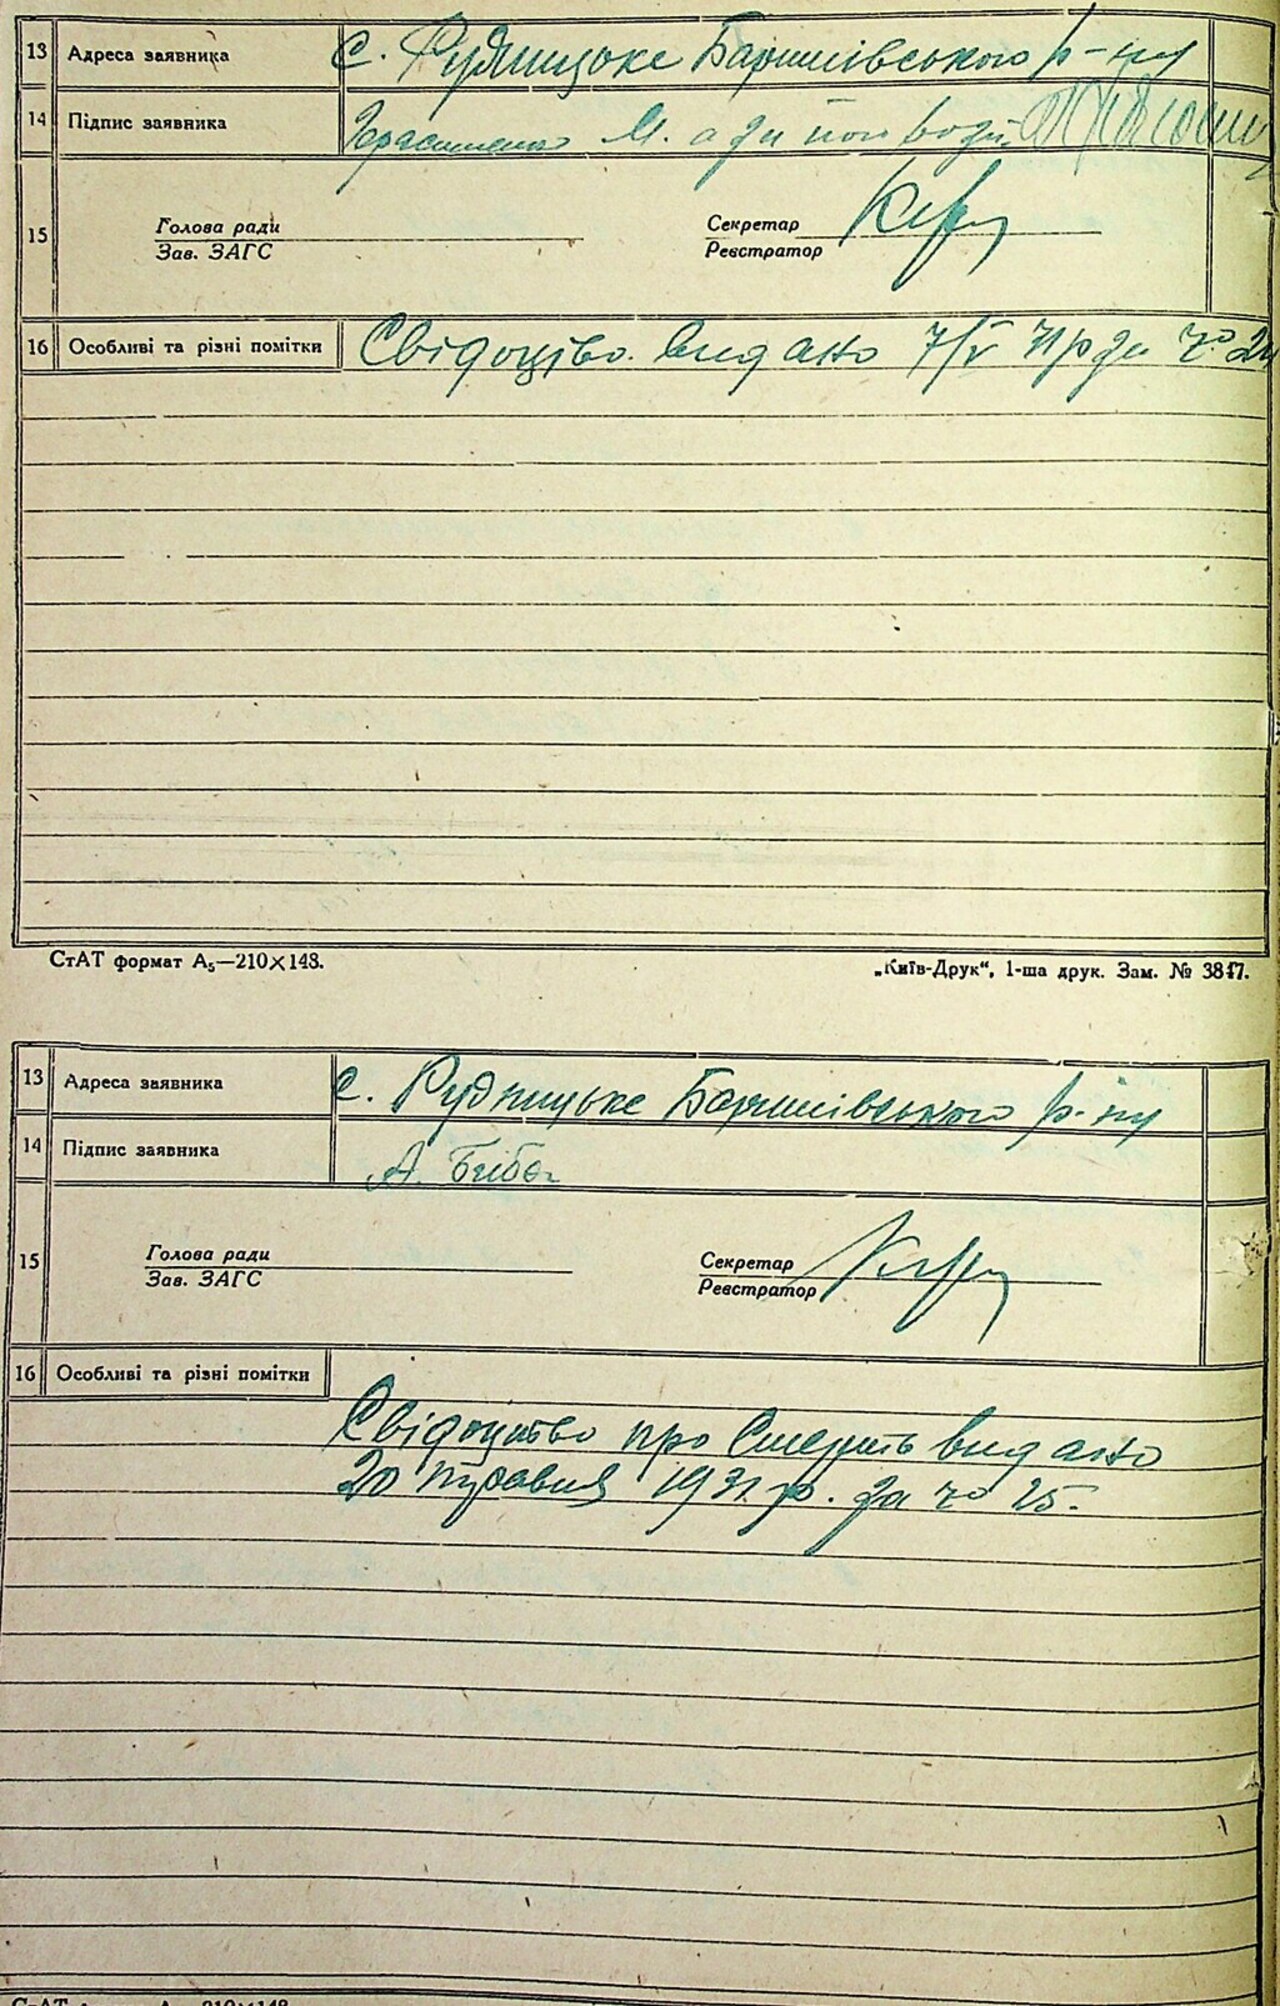 13 Адреса заявника с. Рудницьке Баришівського р-ну
14 Підпис заявника Герасименко М. а за
15 Голова ради Секретар
Зав. ЗАГС Реєстратор
16 Особливі та різні помітки Свідоцтво видано 7/V 31р за №
СтАТ формат А₅—210×148. „Київ-Друк“, 1-ша друк. Зам. № 3847.
13 Адреса заявника с. Рудницьке Баришівського р-ну
14 Підпис заявника А. Баба
15 Голова ради Секретар
Зав. ЗАГС Реєстратор
16 Особливі та різні помітки
Свідоцтво про Смерть видано
20 травня 1931 р. за № 25.